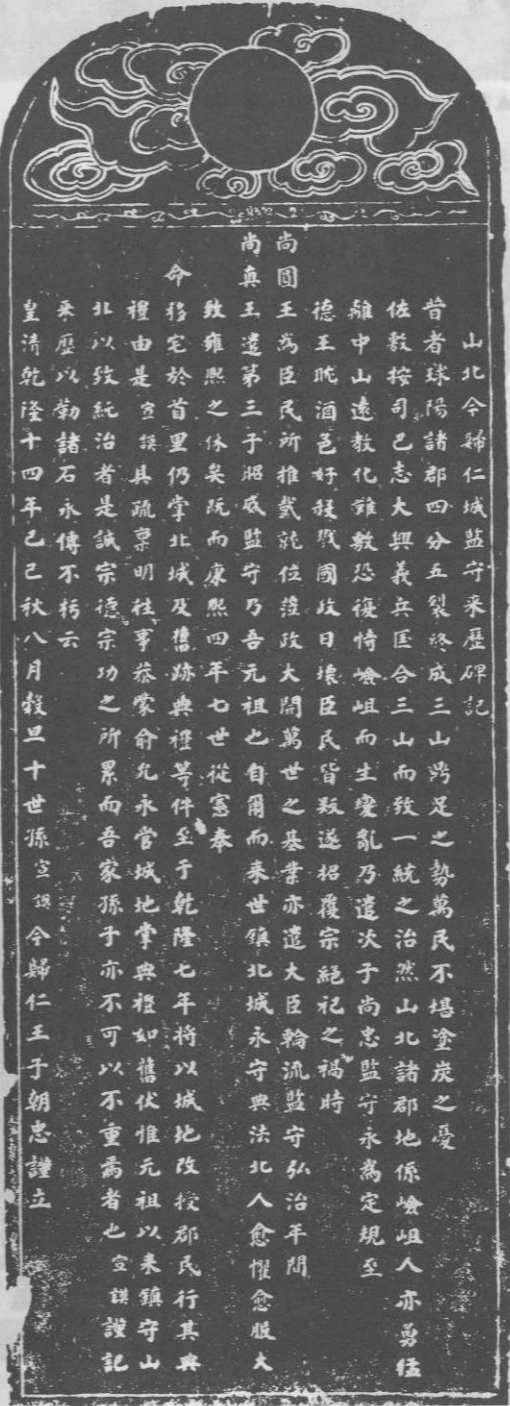 山北今歸仁城監守来歷碑記
昔者球陽諸郡四分五裂終成三山鼎足之勢萬民不堪塗炭之憂
佐敷按司巴志大興義兵匡合三山而致一統之治然山北諸郡地係嶮岨人亦勇猛
離中山遠教化難敷恐復恃嶮岨而生變亂乃遣次子尚忠監守永為定規至
德王耽酒色好殺戮國政日壞臣民皆叛遂招覆宗絕祀之禍時
尚圓王為臣民所推戴就位蒞政大開萬世之基業亦遣大臣輪流監守弘治年間
尚真王遣第三子昭威監守乃吾元祖也自爾而来世鎮北城永守典法北人愈懼愈服大
致雍熙之休矣既而康熙四年七世從憲奉
命移宅於首里仍掌北城及舊跡典禮等件至于乾隆七年將以城地改授郡民行其典
禮由是宣謨具疏稟明往事恭蒙俞允永管城地掌典禮如舊伏惟元祖以来鎮守山
北以致統治者是誠宗德宗功之所累而吾家孫子亦不可以不重焉者也宣謨謹記
来歷以勒諸石永傳不朽云
皇清乾隆十四年己巳秋八月穀旦十世孫宣謨今歸仁王子朝忠謹立